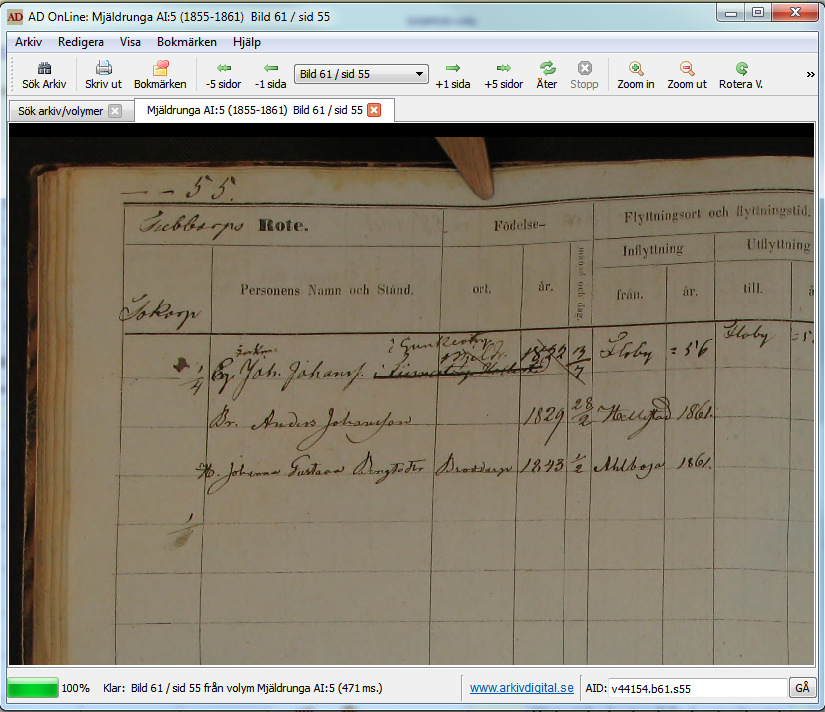 AD OnLine: Mjäldrunga AI:5 (1855-1861) Bild 61 / sid 55
Arkiv Redigera Visa Bokmärken Hjälp
Sök Arkiv Skriv ut Bokmärken -5 sidor -1 sida Bild 61 / sid 55 +1 sida +5 sidor Åter Stopp Zoom in Zoom ut Rotera V. »
Sök arkiv/volymer Mjäldrunga AI:5 (1855-1861) Bild 61 / sid 55
- - 55.
Rote. Födelse- Flyttningsort och flyttningstid.
Inflyttning Utflyttning
Personens Namn och Stånd. ort. år. månad och dag. från. år. till. å
1/4 Joh. Johans. 1822 13/7 Floby = 56 Floby = 5
Br. Anders Johansson 1829 28/2 1861.
H. Johanna Gustava Bengtsdr 1843 1/2 1861.
1/1
100% Klar: Bild 61 / sid 55 från volym Mjäldrunga AI:5 (471 ms.) www.arkivdigital.se AID: v44154.b61.s55 GÅ